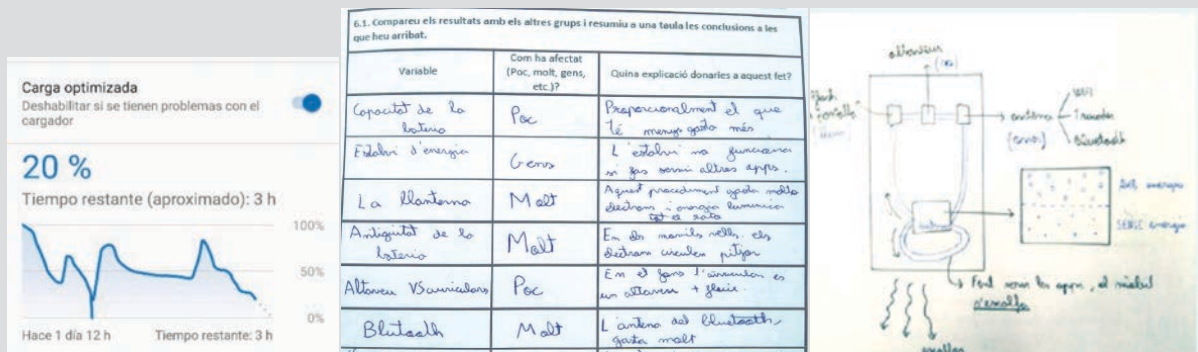 Carga optimizada
Deshabilitar si se tienen problemas con el
cargador
20 %
Tiempo restante (aproximado): 3 h
100%
50%
0%
Hace 1 día 12 h
Tiempo restante: 3 h
6.1. Compareu els resultats amb els altres grups i resumiu a una taula les conclusions a les
que heu arribat.
Variable
Com ha afectat
(Poc, molt, gens,
etc.)?
Quina explicació donaries a aquest fet?
Capacitat de la
bateria
Poc
Proporcionalment el que
té menys gasta més
Estalvi d'energia
Gens
L'estalvi no funciona
si fas servir altres apps.
La llanterna
Molt
Aquest procediment gasta molts
electrons i energia lumínica
tot el rato
Antiguitat de la
bateria
Molt
En els mòbils vells, els
electrons circulen pitjor
Altaveu VS auriculars
Poc
En el fons l'auricular es
un altaveu + fluix.
Blutooth
Molt
L'antena del bluetooth,
gasta molt
altaveu
antena
WIFI
Bluetooth
bateria
AMB energia
SENSE energia
Fent servir les apps, el mòbil
s'escalfa